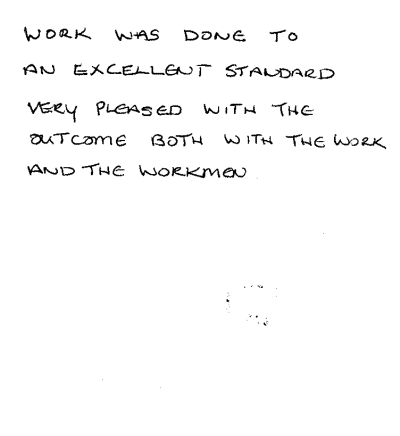 WORK WAS DONE TO
AN EXCELLENT STANDARD
VERY PLEASED WITH THE
OUTCOME BOTH WITH THE WORK
AND THE WORKMEN